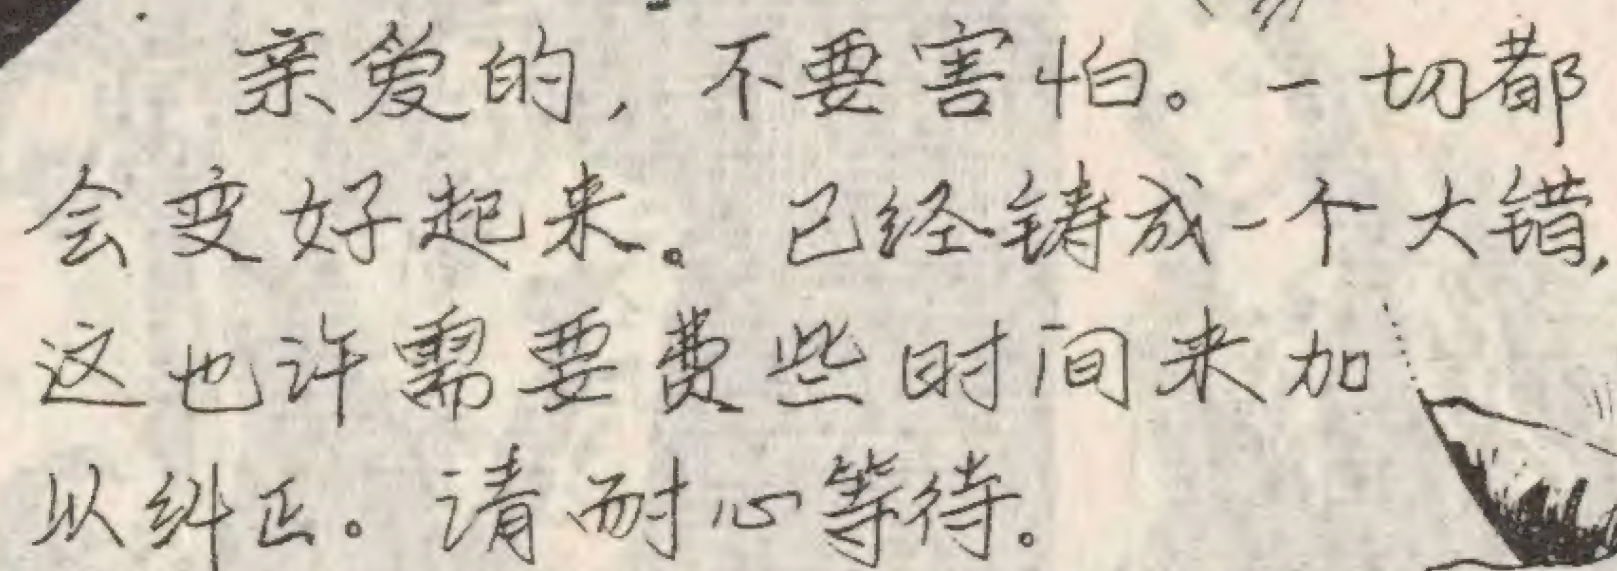 亲爱的，不要害怕。一切都
会变好起来。已经铸成一个大错，
这也许需要费些时间来加
以纠正。请耐心等待。